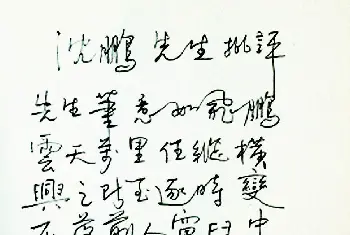 沈鹏先生批評
先生筆意如飛鵬
雲天萬里任縱橫
興之所至逐時變
不為前人窠臼中